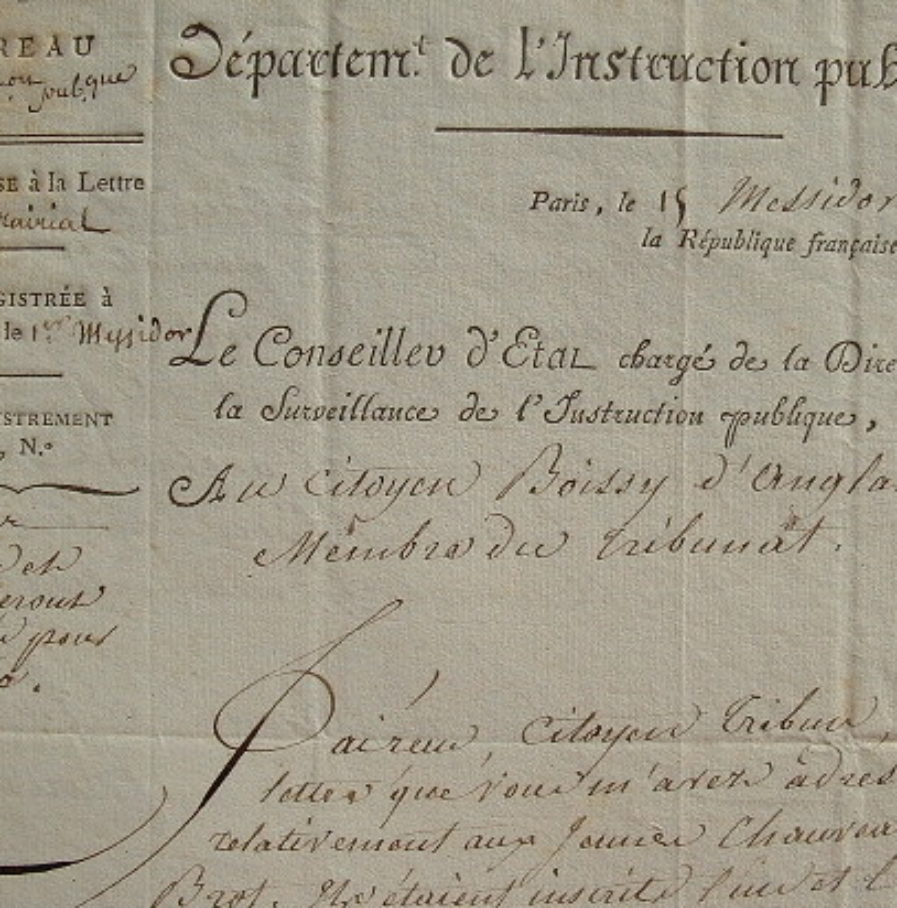 REAU
on pub.que
SE à la Lettre
rairial
GISTRÉE à
le 1er Messidor
STREMENT
N.°
et
eront
pour
Départem.t de l'Instruction pub
Paris, le 15 Messidor
la République française
Le Conseiller d'Etat chargé de la Dire
la Surveillance de l'Instruction publique,
Au Citoyen Boissy d'Angla
Membre du tribunat.
J'ai reçu, Citoyen Tribun,
lettre que vous m'avez adres
relativement aux jeunes
Brot. Ils étaient inscrits l'un et l